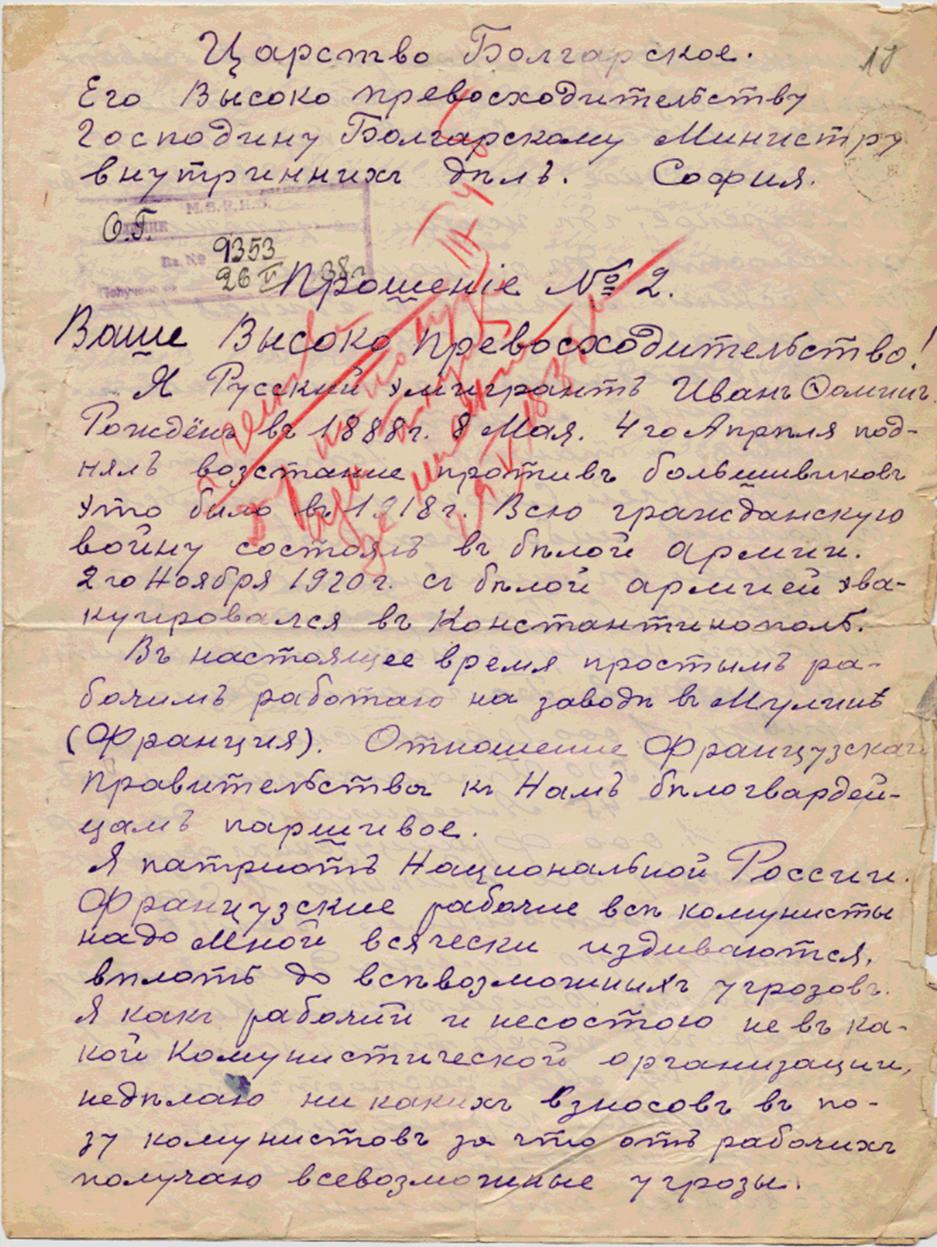 Царство Болгарское.
Его Высоко превосходительству
Господину Болгарскому Министру
внутриннихъ дѣлъ. София.
О.Г.
9353
26 II 38г
Прошеніе № 2.
Ваше Высоко превосходительство!
Я Русский эмигрантъ Иванъ Ѳомичъ
Рождёнъ въ 1888г. 8 Мая. 4го Апрѣля под-
нялъ возстание противъ большивиковъ
это было въ 1918г. Всю гражданскую
войну состоялъ въ бѣлой армии.
2го Ноября 1920г. съ бѣлой армией эва-
куировался въ Константинополь.
Въ настоящее время простымъ ра-
бочимъ работаю на заводѣ въ Мулинѣ
(Франция). Отношение Французскаго
правительства къ Намъ бѣлогвардей-
цамъ паршивое.
Я патриотъ Национальной России.
Французские рабочие всѣ комунисты
надо Мной всячески издиваются,
вплоть до всѣвозможныхъ угрозовъ.
Я какъ рабочий и несостою не въ ка-
кой Комунистической организации,
недѣлаю ни какихъ взносовъ въ по-
зу комунистовъ за что отъ рабочихъ
получаю всевозможные угрозы.